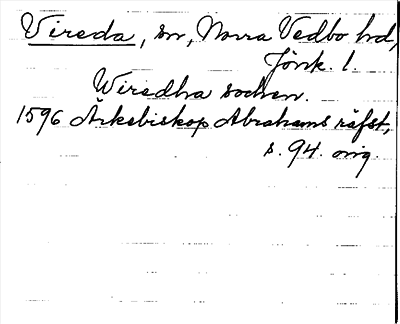 Vireda, sn, Norra Vedbo hd,
Jönk. l.
Wiredha sochen.
1596 Ärkebiskop Abrahams räfst,
s. 94. orig.